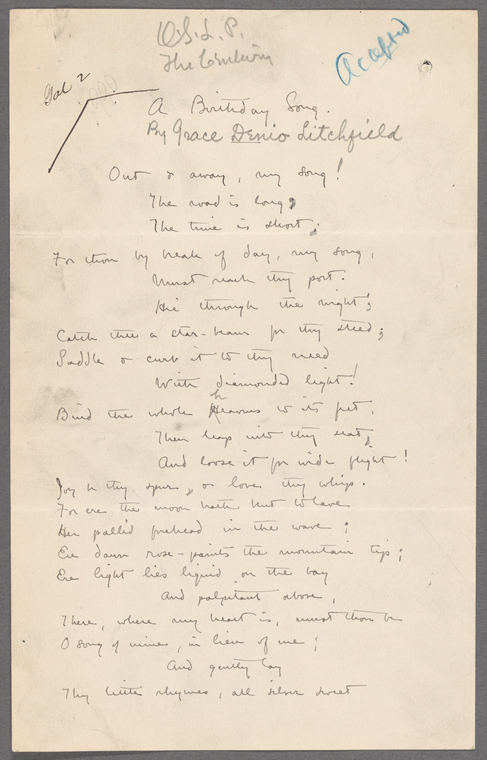 O.S.L.P.
The Century
Accepted
Gal 2
A Birthday Song.
By Grace Denio Litchfield
Out & away, my song!
The road is long;
The time is short;
For thou by break of day, my song,
Must reach thy port.
Hie through the night;
Catch thee a star-beam for thy steed;
Saddle & curb it to thy need
With diamonded light!
Bind the whole heavens to its feet,
Then leap into thy seat,
And loose it for wide flight!
Joy be thy spur, & love thy whip.
For ere the moon hath bent to lave
Her pallid forehead in the wave;
Ere dawn rose-paints the mountain tip;
Ere light lies liquid on the bay
And palpitant above,
There, where my heart is, must thou be
O song of mine, in lieu of me;
And gently lay
Thy little rhymes, all silver sweet